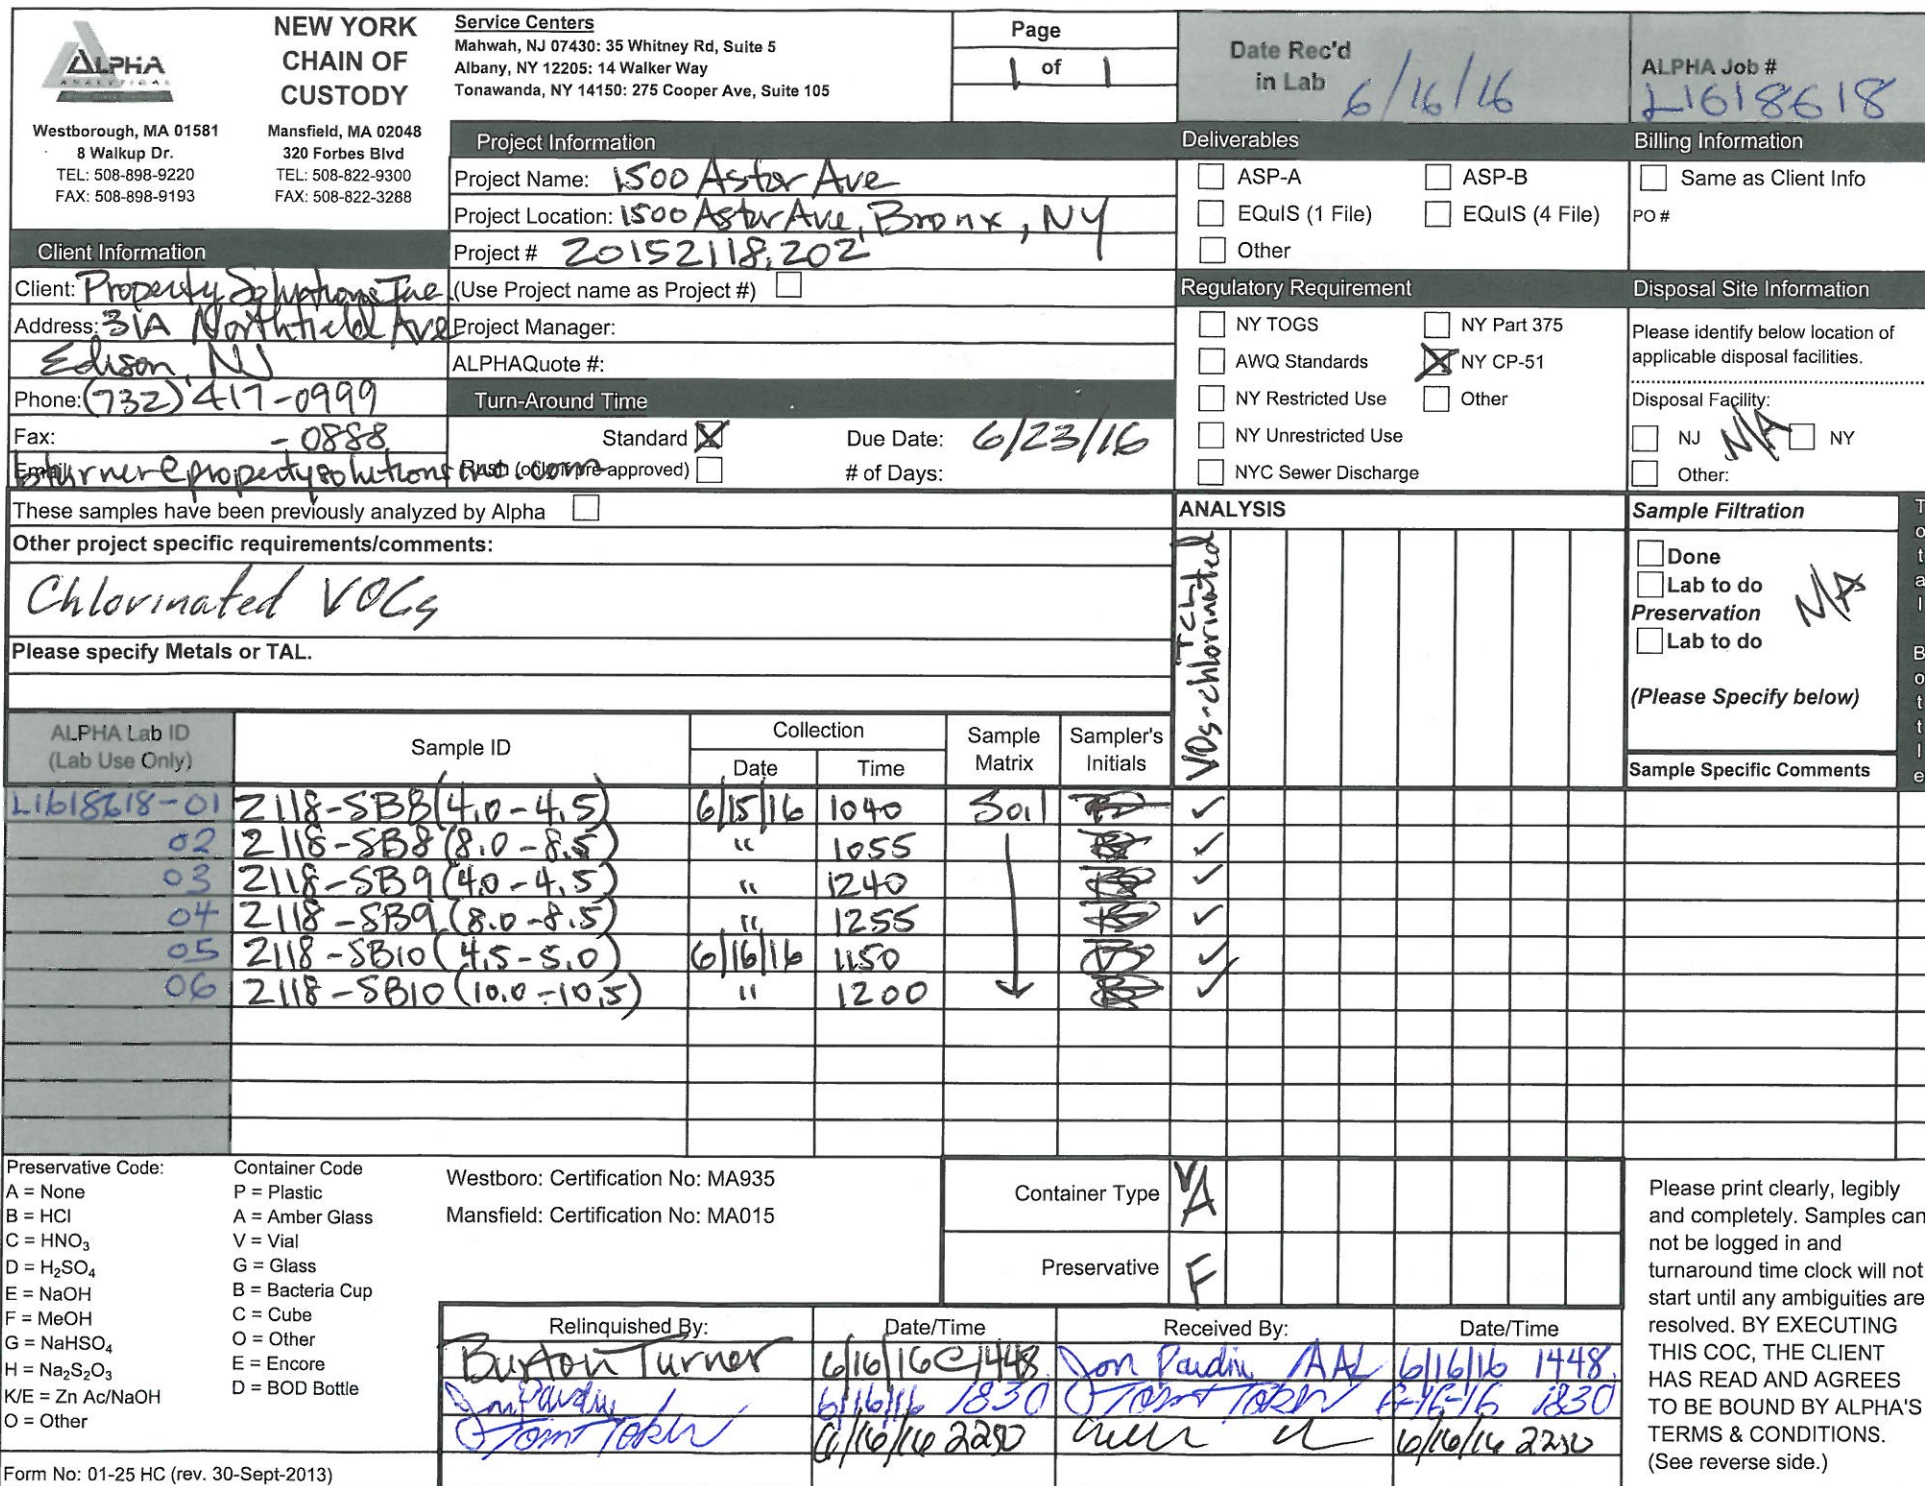 ALPHA
ANALYTICAL
NEW YORK
CHAIN OF
CUSTODY
Westborough, MA 01581
8 Walkup Dr.
TEL: 508-898-9220
FAX: 508-898-9193
Mansfield, MA 02048
320 Forbes Blvd
TEL: 508-822-9300
FAX: 508-822-3288
Service Centers
Mahwah, NJ 07430: 35 Whitney Rd, Suite 5
Albany, NY 12205: 14 Walker Way
Tonawanda, NY 14150: 275 Cooper Ave, Suite 105
Page
1 of 1
Date Rec'd
in Lab 6/16/16
ALPHA Job #
L1618618
Project Information
Project Name: 1500 Astor Ave
Project Location: 1500 Astor Ave, Bronx, NY
Project # 20152118.202
(Use Project name as Project #)
Project Manager:
ALPHAQuote #:
Client Information
Client: Property Solutions Inc.
Address: 31A Northfield Ave
Edison, NJ
Phone: (732) 417-0999
Fax: -0888
Email: bturner@propertysolutionsinc.com
Turn-Around Time
Standard X Due Date: 6/23/16
Rush (only if pre approved) # of Days:
Deliverables
ASP-A ASP-B
EQuIS (1 File) EQuIS (4 File)
Other
Regulatory Requirement
NY TOGS NY Part 375
AWQ Standards X NY CP-51
NY Restricted Use Other
NY Unrestricted Use
NYC Sewer Discharge
Billing Information
Same as Client Info
PO #
Disposal Site Information
Please identify below location of
applicable disposal facilities.
Disposal Facility:
NJ N/A NY
Other:
These samples have been previously analyzed by Alpha
Other project specific requirements/comments:
Chlorinated VOCs
Please specify Metals or TAL.
ANALYSIS
TCL
VOs-chlorinated
Sample Filtration
Done
Lab to do
Preservation
Lab to do
N/A
(Please Specify below)
Total Bottle
ALPHA Lab ID
(Lab Use Only)
Sample ID
Collection
Date Time
Sample
Matrix
Sampler's
Initials
Sample Specific Comments
L1618618-01 2118-SB8(4.0-4.5) 6/15/16 1040 Soil ✓
02 2118-SB8(8.0-8.5) " 1055 ✓
03 2118-SB9(4.0-4.5) " 1240 ✓
04 2118-SB9(8.0-8.5) " 1255 ✓
05 2118-SB10(4.5-5.0) 6/16/16 1150 ✓
06 2118-SB10(10.0-10.5) " 1200 ✓
Preservative Code:
A = None
B = HCl
C = HNO3
D = H2SO4
E = NaOH
F = MeOH
G = NaHSO4
H = Na2S2O3
K/E = Zn Ac/NaOH
O = Other
Container Code
P = Plastic
A = Amber Glass
V = Vial
G = Glass
B = Bacteria Cup
C = Cube
O = Other
E = Encore
D = BOD Bottle
Westboro: Certification No: MA935
Mansfield: Certification No: MA015
Container Type V A
Preservative F
Relinquished By: Date/Time Received By: Date/Time
Burton Turner 6/16/16 @ 1448 Jon Pardini AAL 6/16/16 1448
Jon Pardini 6/16/16 1830 6-16-16 1830
6/16/16 6/16/16
Please print clearly, legibly
and completely. Samples can
not be logged in and
turnaround time clock will not
start until any ambiguities are
resolved. BY EXECUTING
THIS COC, THE CLIENT
HAS READ AND AGREES
TO BE BOUND BY ALPHA'S
TERMS & CONDITIONS.
(See reverse side.)
Form No: 01-25 HC (rev. 30-Sept-2013)